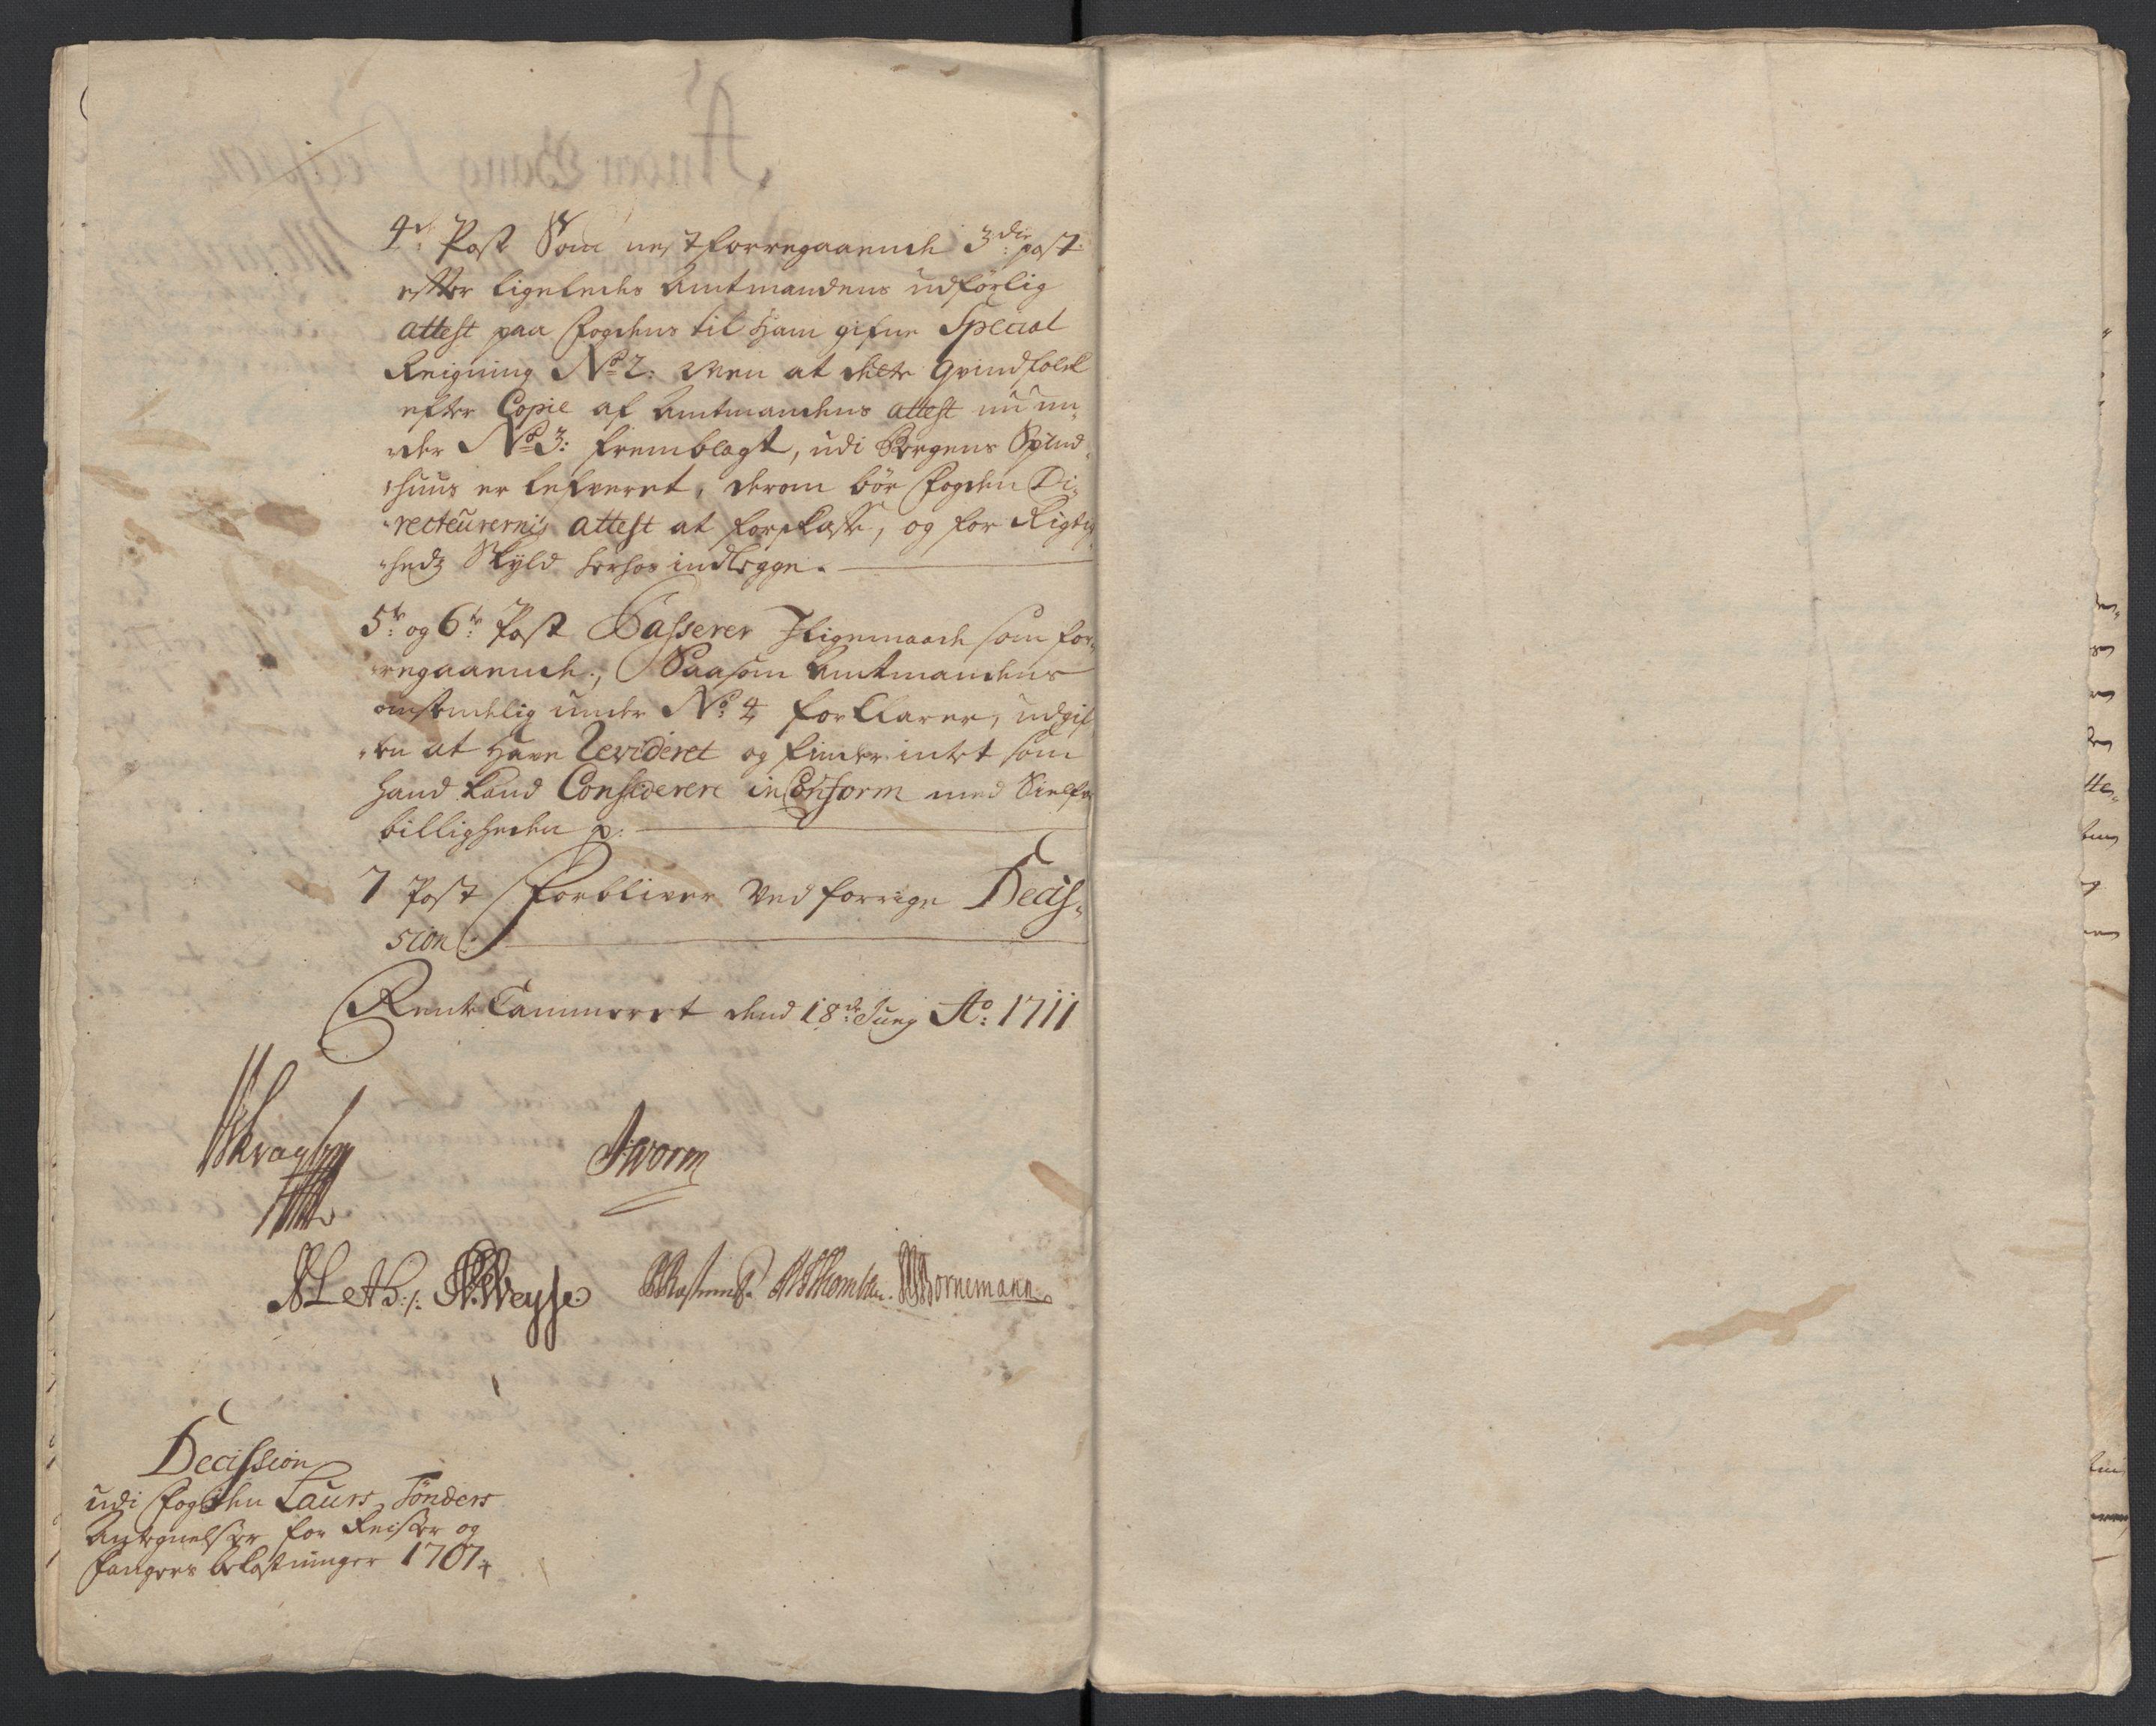 4de Post Som nest forregaaende 3die post
efter ligeledes Amtmandens udførlig
attest paa Fogdens til Ham gifne Special
Reigning No 2: Men at dette Qvindfolck
efter Copie af Amtmandens attest nu un-
der No 3: fremblagt, udi Bergens Spind-
huus er lefveret, derom bør Fogden Di-
recteurernis attest at forskaffe, og for Rigtig-
hedz Skyld herhos indlegge.
5te og 6te Post Passerer Ligemaade som for-
regaaende, Saasom Amtmandens
omstendelig under No 4 forklarer, udgif-
ten at Have Revideret og finder intet som
hand kand Consederere in Conform med Sielfve
billigheden p:
7 Post Forbliver Ved forrige Decis-
sion
Rente Cammeret dend 18de Juny Ao: 1711
JWorm
Leth: Weyse Bornemann
Decission
udi Fogden Laurs Tønders
Antegnelser for Reiser og
Fangers bekostninger 1707